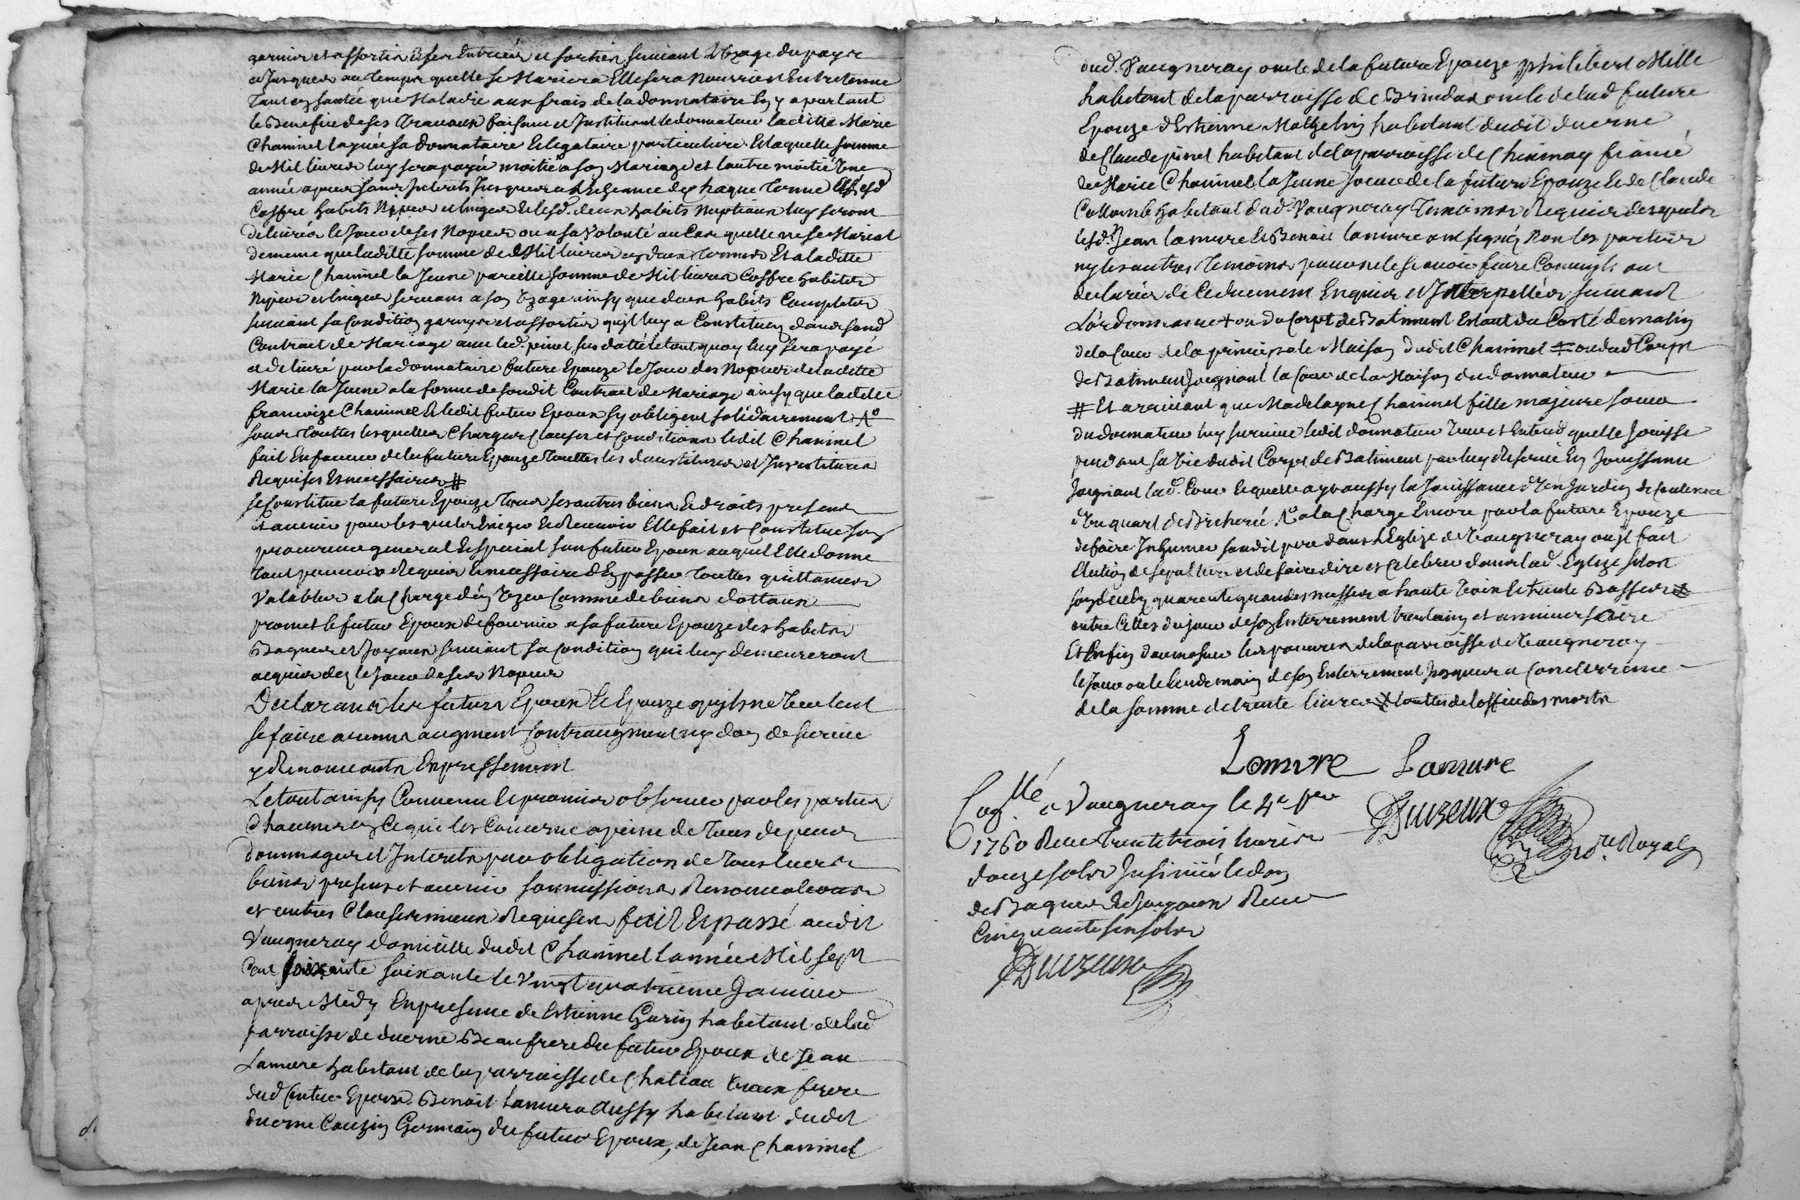 garnier et assortis et ses entrées et sorties suivant l'uzage du pays
et jusques au temps quelle se Mariera Elle sera nourrie et Entretenue
tant en santé que Maladie aux frais de la donnataire En y aportant
le Benefice de ses travaux faisant et Instituant le donnateur laditte Marie
Chaminel laynée sa donnataire et legataire particuliere Et laquelle somme
de Mil livres luy sera payée moitié a son Mariage et l'autre moitié Une
année apres sans Interets Jusques a l'Echeance de chaque terme lesd
Coffre habits Nipes et linges et lesd. deux habits Nuptiaux luy seront
delivrés le Jour de ses Nopces ou a sa volonté au Cas quelle ne se Mariat
de meme que laditte somme de Mil livres en deux termes Et a laditte
Marie Chaminel la Jeune pareille somme de Mil livres Coffre habits
Nipes et linges servans a son Uzage ainsy que deux habits Complets
suivant sa Condition garnys et assortis quil luy a Constitué dans son
Contrat de Mariage avec led. pinet sus datté le tout quoy luy sera payé
et delivré par la donnataire future Epouze le Jour des Nopces de laditte
Marie la Jeune a la forme de sondit Contrat de Mariage ainsy que laditte
francoize Chaminel et ledit futur Epoux sy obligent solidairement
sous touttes lesquelles Charges Clauses et Conditions ledit Chaminel
fait En faveur de la future Epouze touttes les devestitures et Investitures
Requises et necessaires #
se Constitue la future Epouze tous ses autres biens et droits presents
et avenir pour lesquels Exiger et Recevoir Elle fait et Constitue son
procureur general et special son futur Epoux auquel Elle donne
tout pouvoir Requis et necessaire d'En passer touttes quittances
valables a la Charge d'en Uzer Comme de biens dottaux
promet le futur Epoux de fournir a sa future Epouze des habits
Bagues et Joyaux suivant sa Condition qui luy demeureront
acquis des le Jour de ses Nopces
Declarants les futurs Epoux et Epouze quils ne veulent
se faire aucuns augment Contraugment ny don de survie
y Renonceants Expressement
Le tout ainsy Convenu et promis observer par les parties
Chacune en ce qui les Concerne a peine de tous depens
dommages et Interets par obligation de tous leurs
biens presens et avenir soumissions Renonceations
et autres Clauses mieux Requises fait et passé audit
Vaugneray domicille dudit Chaminel L'année Mil sept
Cent soixante le vingt quatrieme Janvier
apres Midy En presence de Estienne Garin habitant de lad
parroisse de duerne Beaufrere du futur Epoux de Jean
Lamure habitant de la parroisse de Chateau vieux frere
dud futur Epoux. Benoit Lamure Aussy habitant dudit
duerne Couzin Germain du futur Epoux, de Jean Chaminel
dud. Vaugneray oncle de la future Epouze philibert Mille
habitant de la parroisse de Brindas oncle de lad future
Epouze d'Estienne habitant dudit duerne
de Claude pinet habitant de la parroisse de Chevinay fiancé
de Marie Chaminel la Jeune soeur de la future Epouze et de Claude
Collomb habitant dud. Vaugneray temoins Requis desquels
lesd. Jean lamure et Benoit lamure ont signé Non les parties
ny les autres temoins pour ne le scavoir faire Comm'ils ont
declarés de Ce duement Enquis et Interpellés suivant
L'ordonnance + ou du Corps de Batiment Estant du Costé de matin
de la Cour de la principale Maison dudit Chaminel # ou dud Corps
de Batiment Joignant la Cour de la Maison du donnateur
# Et arrivant que Madelayne Chaminel fille majeure soeur
du donnateur luy survive ledit donnateur veut et Entend quelle Jouisse
pendant sa vie dudit Corps de Batiment par luy Reservé En Jouissance
Joignant lad. Cour Lequelle ayt aussy la Jouissance d'Un Jardin de Contenue
d'Un quart de Bicherée. a la Charge Encore par la future Epouze
de faire Inhumer sondit pere dans l'Eglize de Vaugneray ou il fait
Election de sepulture et de faire dire et Celebrer dans lad. Eglize sitot
son deceds quarente grandes messes a haute voix et trente Basses #
outre Celles du Jour de son Enterrement trentain et anniversaire
Et Enfin d'aumosner les pauvres de la parroisse de Vaugneray
le Jour ou le lendemain de son Enterrement Jusques a Concurrence
de la somme de trente livres # touttes de l'office des morts
Lamure Lamure
Con.llé a Vaugneray le 4e fer
1760 Reçu trente trois livres
douze sols Insinué le don
de Bagues et Joyaux Reçu
Cinquante six sols
Duizeux
Duizeux
no.re Royal